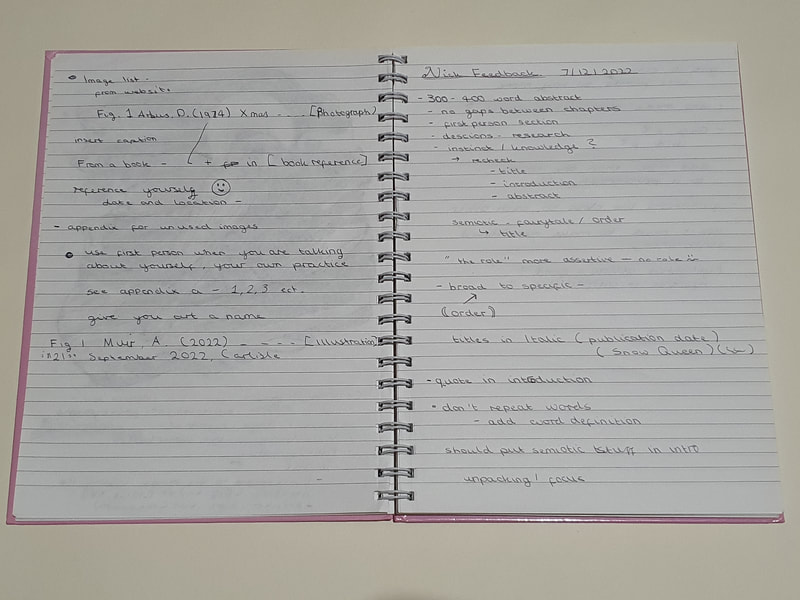 • Image list -
from website.
Fig. 1 Arbus, D. (1974) Xmas - - - - [Photograph]
insert caption
From a book - + in [book reference]
reference yourself ☺
date and location -
- appendix for unused images
• use first person when you are talking
about yourself, your own practice
see appendix a - 1, 2, 3 ect.
give you art a name
Fig 1 Muir, A (2022) - - - - [Illustration]
21 September 2022, Carlisle
Nick Feedback 7/12/2022
- 300 - 400 word abstract
- no gaps between chapters
- first person section
- descions - research
- instinct / knowledge ?
→ recheck
- title
- introduction
- abstract
semiotic - fairytale / order
↳ title
"the role" more assertive - no role
- broad to specific -
(order)
titles in Italic (publication date)
(Snow Queen)
- quote in introduction
• don't repeat words
- add word definition
should put semiotic stuff in intro
unpacking! focus